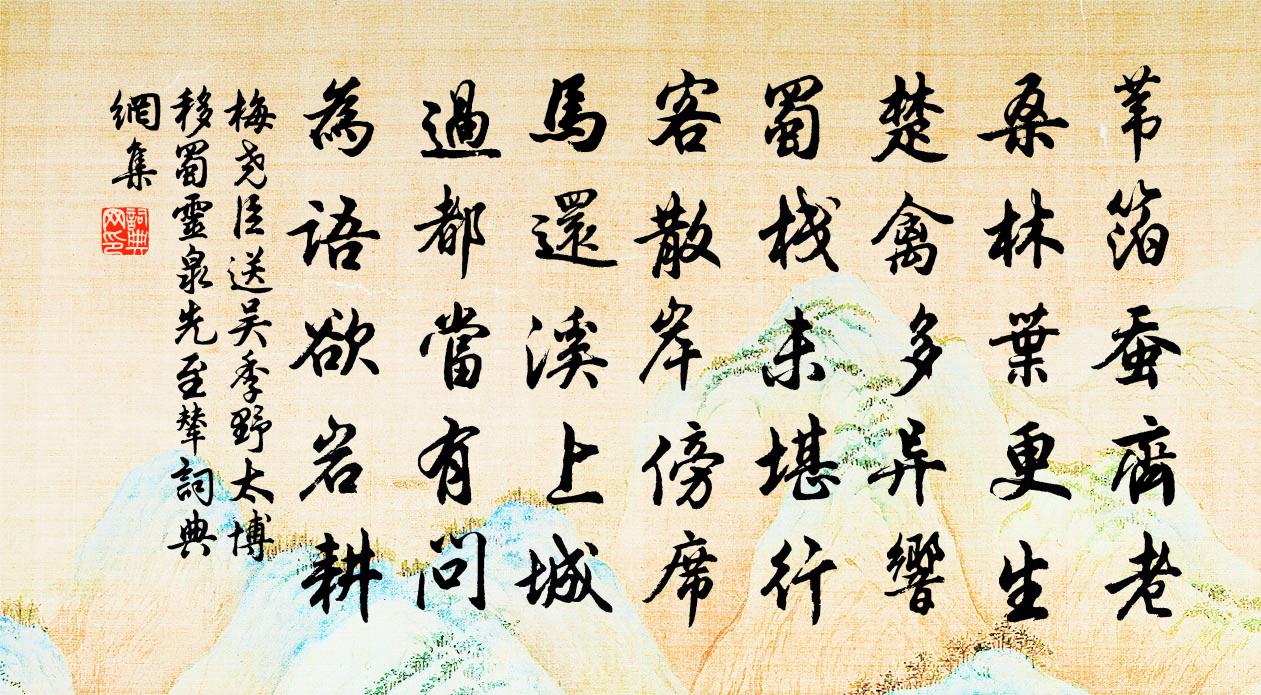 苇箔蚕齊老
桑林葉更生
楚禽多异響
蜀栈未堪行
客散岸傍席
馬還溪上城
過都當有問
為語欲岩耕
梅尧臣送吴季野太博
移蜀靈泉先至輦詞典
網集
詞典网印